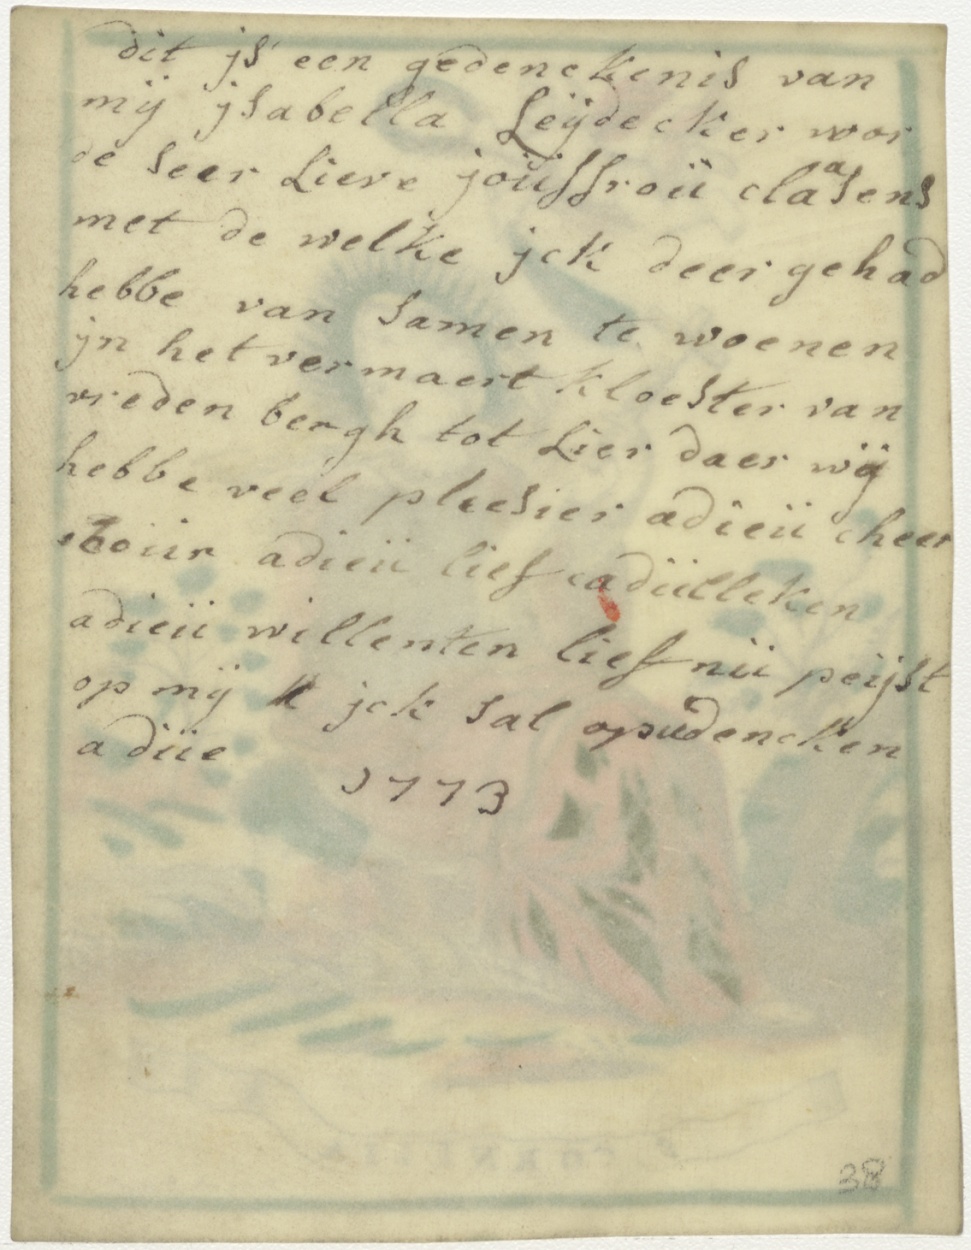 dit js een gedenckenis van
mij jsabella Leÿdecker wor
de seer Lieve joüffroü claasens
met de welke jck deer gehad
hebbe van samen te woenen
jn het vermaert kloester van
vreden bergh tot Lier daer wÿ
hebbe veel pleesier adieü cheer
adieü lief
adieü willenten lief nü peijst
op mij jck sal opüdencken
adiie
1773
38